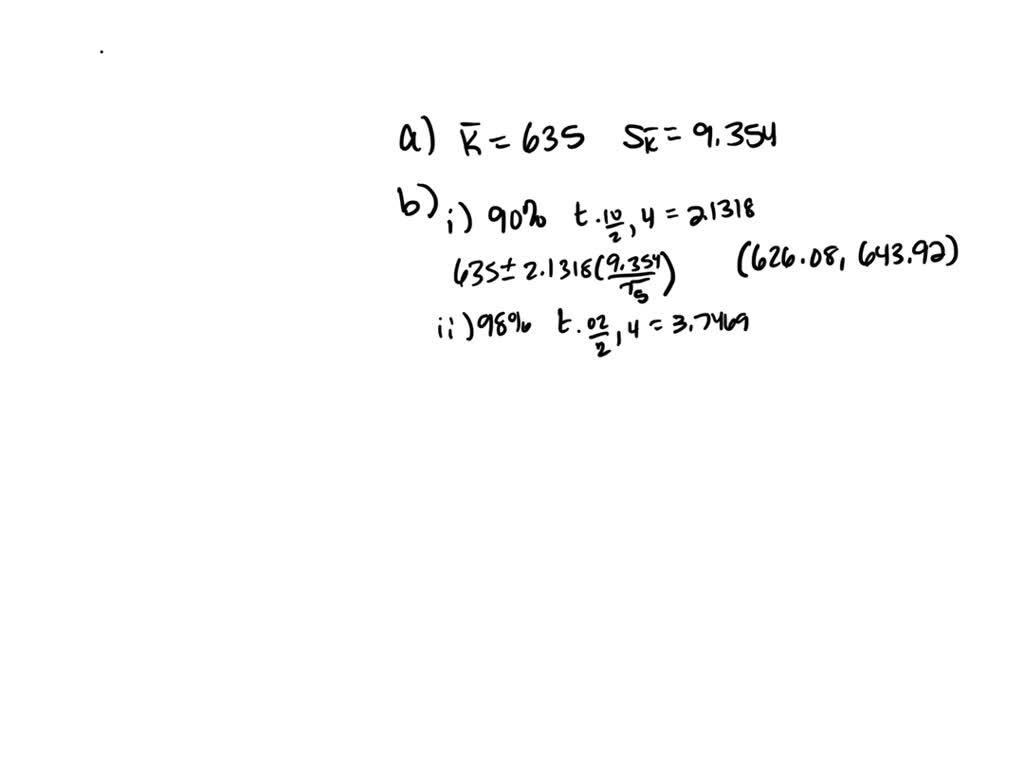 a) K̄ = 635 S_K̄ = 9.354
b) i) 90% t.10/2, 4 = 2.1318
635 ± 2.1318(9.354/√5) (626.08, 643.92)
ii) 98% t.02/2, 4 = 3.7469